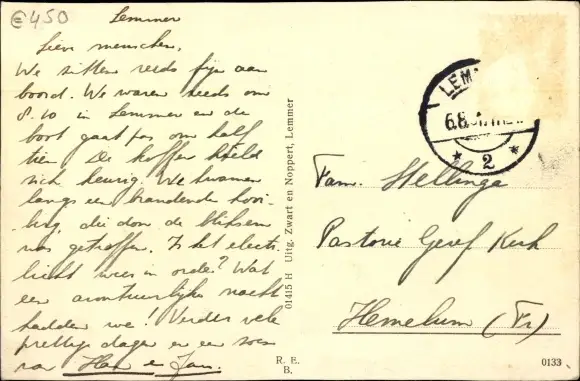 €450
Lemmer
Lieve menschen,
We zitten reeds fijn aan
boord. We waren reeds om
8.10 in Lemmer en de
boot gaat pas om half
tien. De koffer hield
zich keurig. We kwamen
langs een brandende hooi-
berg, die door de bliksem
was getroffen. Is het electr.
licht weer in orde? Wat
een avontuurlijke nacht
hadden we! Verder vele
prettige dagen en een zoen
van Han en Jan.
01415 H Uitg. Zwart en Noppert, Lemmer
R. E.
B.
LEM
6.8.
2
Fam. Stellinga
Pastorie Geref. Kerk
Hemelum (Fr)
0133